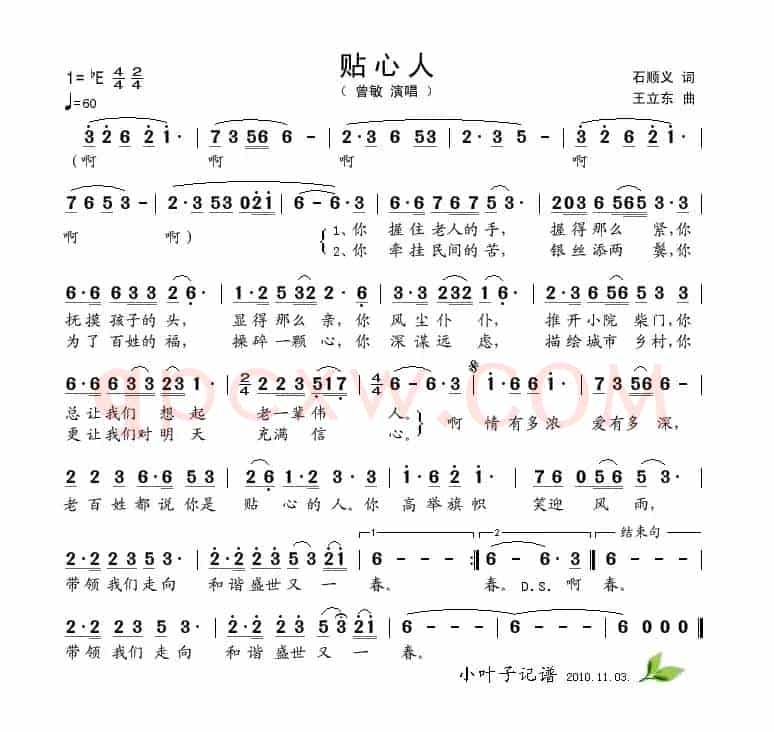 贴心人
（ 曾敏 演唱 ）
1=♭E 4/4 2/4
♩=60
石顺义 词
王立东 曲
3 2 6 2 1· | 7 3 56 6 - | 2·3 6 53 2 - | 3 2 6 2 1· |
(啊 啊 啊 啊
7 6 5 3 - | 2·3 53 021 | 6 - 6·3 | 6·6 76 7 53· | 203 6 565 3·3 |
啊 啊) 1、你 握住老人的手, 握得那么 紧,你
2、你 牵挂民间的苦, 银丝添两 鬓,你
6·6 633 2 6· | 1·2 5 32 2·2 | 3·3 232 1 6· | 2·3 6 56 3·3 |
抚摸孩子的头, 显得那么 亲,你 风尘仆 仆, 推开小院 柴门,你
为了百姓的福, 操碎一颗 心,你 深谋远 虑, 描绘城市 乡村,你
6·6 633 23 1· | 2/4 22 3 517 | 4/4 6 - 6·3 | 1·66 1· | 7 3 56 6 - |
总让我们 想起 老一辈伟 人。 啊 情有多浓 爱有多深,
更让我们对明天 充满信 心。
2·2 3 3 6·6 53 | 26· 12 3·3 | 1·6 2 1 - | 76 05 56 3 - |
老百姓都说你是 贴 心的人。你 高举旗帜 笑迎 风 雨,
1 2 结束句
2·2 23 5 3· | 2·2 23 53 21 | 6 - - - :‖ 6 - 6·3 ‖ 6 - - - |
带领我们走向 和谐盛世又 一 春。 春。D.S. 啊 春。
2·2 23 5 3· | 2·2 23 53 231 | 6 - - - | 6 - - - | 6 0 0 0 ‖
带领我们走向 和谐盛世又 一 春。
小叶子记谱 2010.11.03.